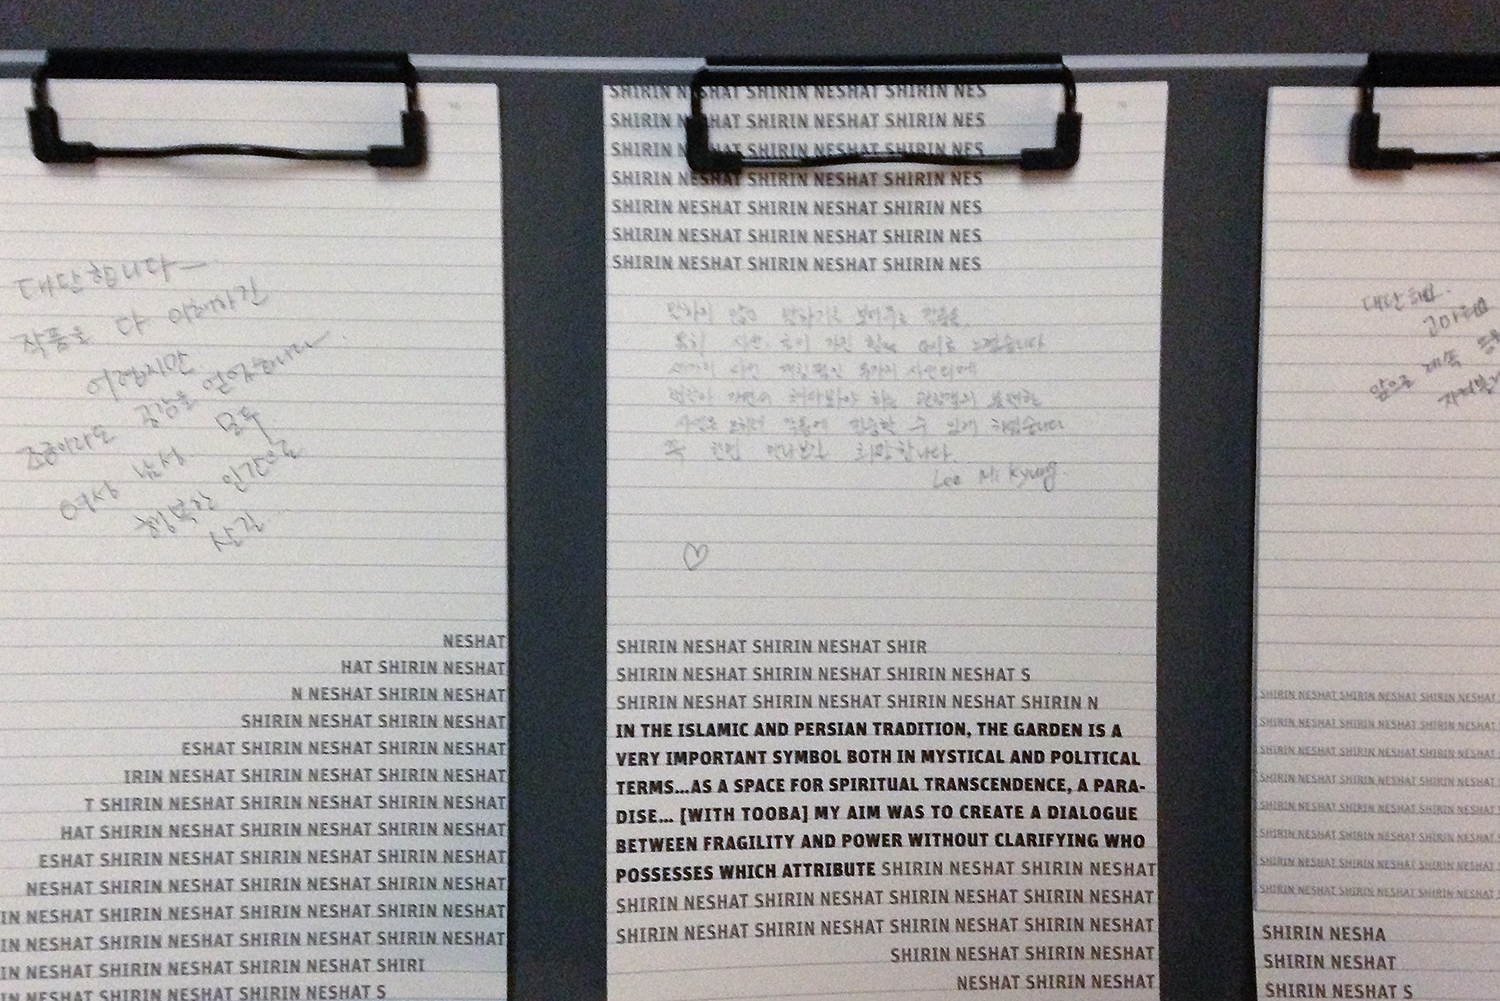 대단합니다—
작품을 다 이해하긴
어렵지만
조금이라도 공감을 얻었습니다—.
여성 남성 모두
행복한 인간으로
살길
NESHAT
HAT SHIRIN NESHAT
N NESHAT SHIRIN NESHAT
SHIRIN NESHAT SHIRIN NESHAT
ESHAT SHIRIN NESHAT SHIRIN NESHAT
IRIN NESHAT SHIRIN NESHAT SHIRIN NESHAT
T SHIRIN NESHAT SHIRIN NESHAT SHIRIN NESHAT
HAT SHIRIN NESHAT SHIRIN NESHAT SHIRIN NESHAT
ESHAT SHIRIN NESHAT SHIRIN NESHAT SHIRIN NESHAT
NESHAT SHIRIN NESHAT SHIRIN NESHAT SHIRIN NESHAT
IN NESHAT SHIRIN NESHAT SHIRIN NESHAT SHIRIN NESHAT
IN NESHAT SHIRIN NESHAT SHIRIN NESHAT SHIRIN NESHAT
IN NESHAT SHIRIN NESHAT SHIRIN NESHAT SHIRI
IN NESHAT SHIRIN NESHAT SHIRIN NESHAT S
SHIRIN NESHAT SHIRIN NESHAT SHIRIN NES
SHIRIN NESHAT SHIRIN NESHAT SHIRIN NES
SHIRIN NESHAT SHIRIN NESHAT SHIRIN NES
SHIRIN NESHAT SHIRIN NESHAT SHIRIN NES
SHIRIN NESHAT SHIRIN NESHAT SHIRIN NES
SHIRIN NESHAT SHIRIN NESHAT SHIRIN NES
SHIRIN NESHAT SHIRIN NESHAT SHIRIN NES
말하지 않고 말하기를 보여주는 작품은.
특히 사진, 춤이 가진 힘에 느꼈습니다
하는 관람객의
작품에 집중할 수 있게 하였습니다
꼭 한번 만나보길 희망합니다.
Lee Mi Kyung.
♡
SHIRIN NESHAT SHIRIN NESHAT SHIR
SHIRIN NESHAT SHIRIN NESHAT SHIRIN NESHAT S
SHIRIN NESHAT SHIRIN NESHAT SHIRIN NESHAT SHIRIN N
IN THE ISLAMIC AND PERSIAN TRADITION, THE GARDEN IS A
VERY IMPORTANT SYMBOL BOTH IN MYSTICAL AND POLITICAL
TERMS...AS A SPACE FOR SPIRITUAL TRANSCENDENCE, A PARA-
DISE... [WITH TOOBA] MY AIM WAS TO CREATE A DIALOGUE
BETWEEN FRAGILITY AND POWER WITHOUT CLARIFYING WHO
POSSESSES WHICH ATTRIBUTE SHIRIN NESHAT SHIRIN NESHAT
SHIRIN NESHAT SHIRIN NESHAT SHIRIN NESHAT SHIRIN NESHAT
SHIRIN NESHAT SHIRIN NESHAT SHIRIN NESHAT SHIRIN NESHAT
SHIRIN NESHAT SHIRIN NESHAT
NESHAT SHIRIN NESHAT
대단해요.
고마워요
앞으로 계속
SHIRIN NESHAT SHIRIN NESHAT SHIRIN NESHAT
SHIRIN NESHAT SHIRIN NESHAT SHIRIN NESHAT
SHIRIN NESHAT SHIRIN NESHAT SHIRIN NESHAT
SHIRIN NESHAT SHIRIN NESHAT SHIRIN NESHAT
SHIRIN NESHAT SHIRIN NESHAT SHIRIN NESHAT
SHIRIN NESHAT SHIRIN NESHAT SHIRIN NESHAT
SHIRIN NESHAT SHIRIN NESHAT SHIRIN NESHAT
SHIRIN NESHAT SHIRIN NESHAT SHIRIN NESHAT
SHIRIN NESHA
SHIRIN NESHAT
SHIRIN NESHAT S